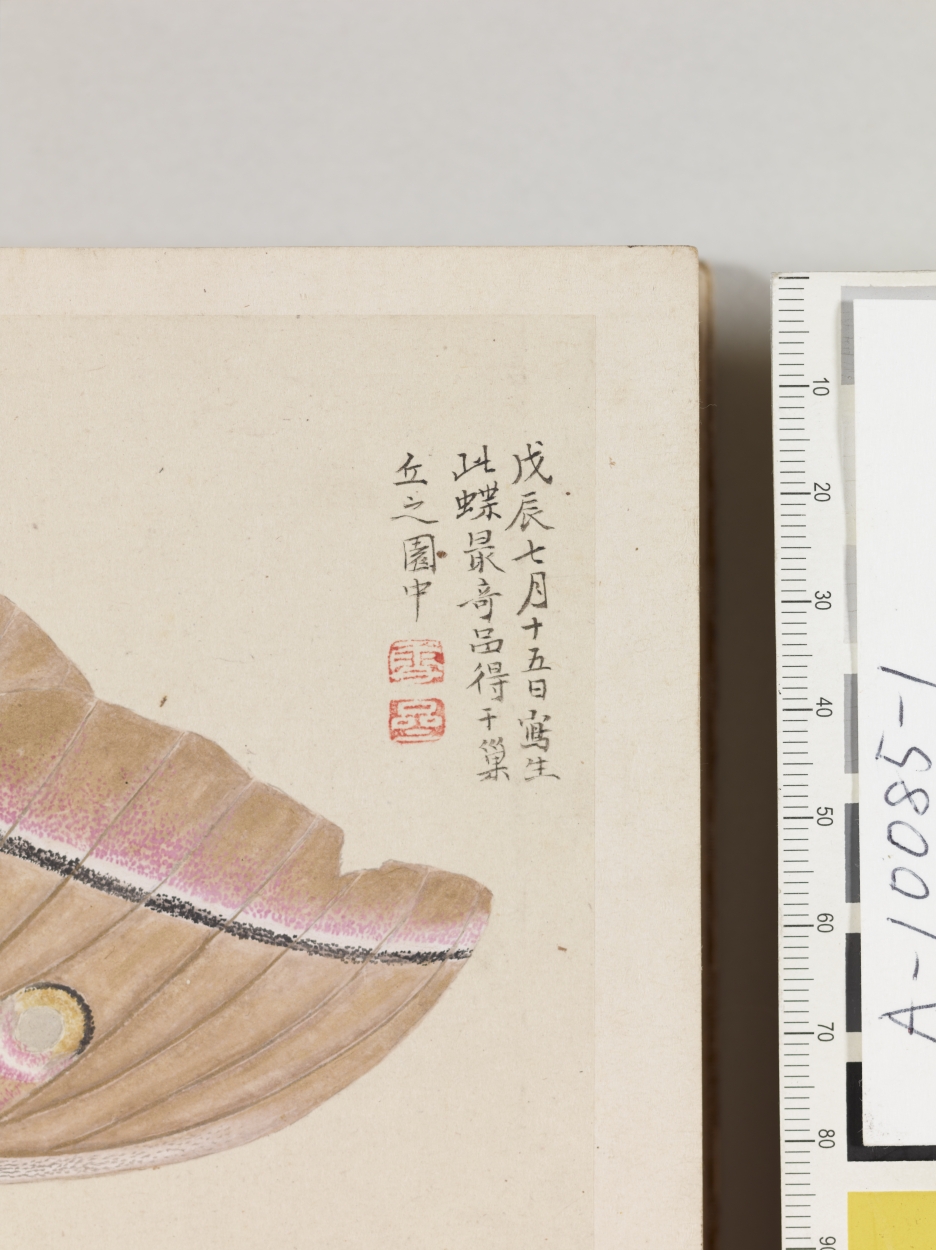 戊辰七月十五日寫生
此蝶最奇品得于巢
丘之園中
雪
岊
10
20
30
40
50
60
70
80
90
A-10085-1